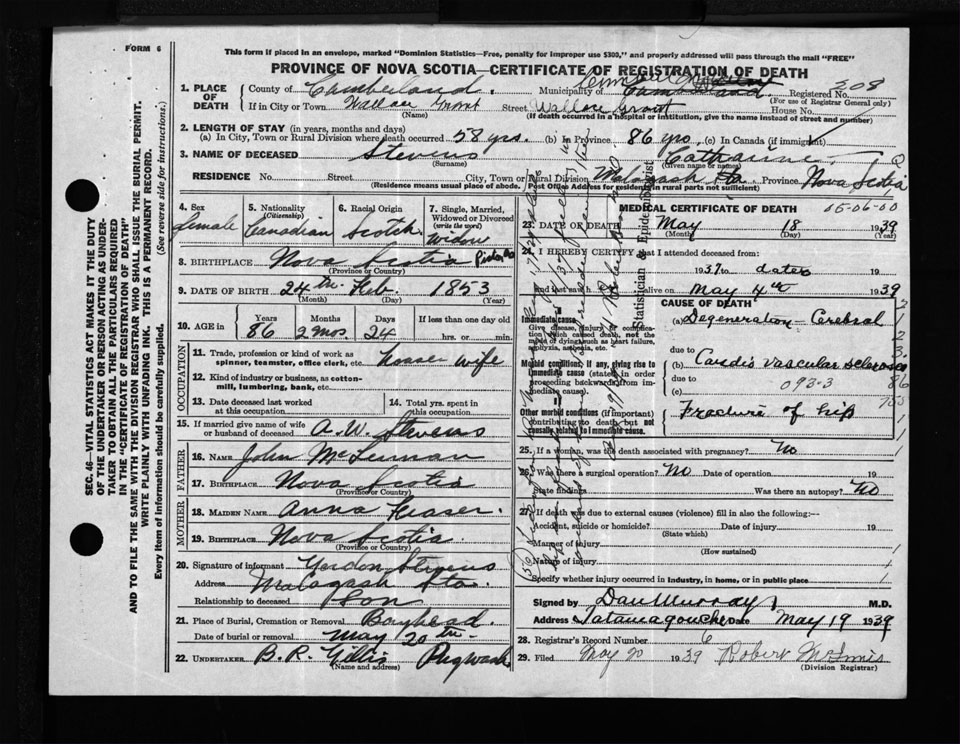 FORM 6
This form if placed in an envelope, marked "Dominion Statistics—Free, penalty for improper use $300," and properly addressed will pass through the mail "FREE"
PROVINCE OF NOVA SCOTIA—CERTIFICATE OF REGISTRATION OF DEATH
SEC. 46—VITAL STATISTICS ACT MAKES IT THE DUTY
OF THE UNDERTAKER OR PERSON ACTING AS UNDER-
TAKER TO OBTAIN ALL THE PARTICULARS REQUIRED
IN THE "CERTIFICATE OF REGISTRATION OF DEATH"
AND TO FILE THE SAME WITH THE DIVISION REGISTRAR WHO SHALL ISSUE THE BURIAL PERMIT.
WRITE PLAINLY WITH UNFADING INK. THIS IS A PERMANENT RECORD.
Every item of information should be carefully supplied. (See reverse side for instructions.)
1. PLACE OF DEATH County of Cumberland. Municipality of Cumberland Registered No. 208
(For use of Registrar General only)
If in City or Town Wallace Grant Street Wallace Grant House No.
(Name) (If death occurred in a hospital or institution, give the name instead of street and number)
2. LENGTH OF STAY (in years, months and days)
(a) In City, Town or Rural Division where death occurred 58 yrs. (b) in Province 86 yrs. (c) In Canada (if immigrant)
3. NAME OF DECEASED Stevens Catharine
(Surname) (Given name or names)
RESIDENCE No. Street City, Town or Rural Division Malagash Sta. Province Nova Scotia
(Residence means usual place of abode. Post Office Address for residents in rural parts not sufficient)
4. Sex Female
5. Nationality (Citizenship) Canadian
6. Racial Origin Scotch
7. Single, Married, Widowed or Divorced (write the word) Widow
8. BIRTHPLACE Nova Scotia
(Province or Country)
9. DATE OF BIRTH 24th Feb. 1853
(Month) (Day) (Year)
10. AGE in Years Months Days If less than one day old
86 2 mos. 24 hrs. or min.
OCCUPATION
11. Trade, profession or kind of work as spinner, teamster, office clerk, etc. House wife
12. Kind of industry or business, as cotton-mill, lumbering, bank, etc.
13. Date deceased last worked at this occupation
14. Total yrs. spent in this occupation
15. If married give name of wife or husband of deceased A. W. Stevens
FATHER
16. NAME John McLennan
17. BIRTHPLACE Nova Scotia
(Province or Country)
MOTHER
18. MAIDEN NAME Anna Fraser.
19. BIRTHPLACE Nova Scotia
(Province or Country)
20. Signature of informant Gordon Stevens
Address Malagash Sta.
Relationship to deceased Son
21. Place of Burial, Cremation or Removal Bayhead
Date of burial or removal May 20th
22. UNDERTAKER B. R. Gillis Pugwash
(Name and address)
MEDICAL CERTIFICATE OF DEATH
23. DATE OF DEATH May 18 1939
(Month) (Day) (Year)
24. I HEREBY CERTIFY that I attended deceased from:
1937 to date 19
and last saw alive on May 4th 1939
CAUSE OF DEATH
Immediate cause
Give disease, injury or complication which caused death, not the mode of dying such as heart failure, asphyxia, asthenia, etc.
(a) Degeneration Cerebral
Morbid conditions, if any, giving rise to immediate cause (stated in order proceeding backwards from immediate cause).
due to
(b) Cardio vascular sclerosis
due to 093-3
(c)
Other morbid conditions (if important) contributing to death but not causally related to immediate cause.
Fracture of hip
25. If a woman, was the death associated with pregnancy? No
26. Was there a surgical operation? No Date of operation 19
State findings Was there an autopsy? No
27. If death was due to external causes (violence) fill in also the following:—
Accident, suicide or homicide? Date of injury 19
(State which)
Manner of injury
(How sustained)
Nature of injury
Specify whether injury occurred in industry, in home, or in public place
Signed by Dan Murray M.D.
Address Tatamagouche Date May 19 1939
28. Registrar's Record Number 6
29. Filed May 20 1939 Robert McInnis
(Division Registrar)
Statistician & Epidemiologist